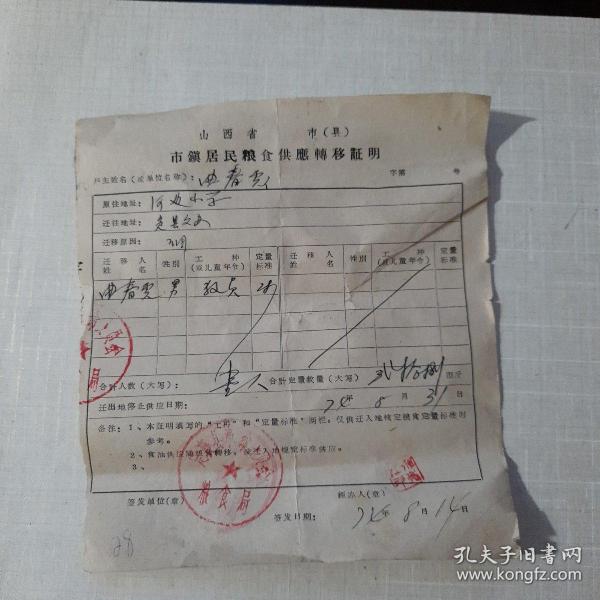 山西省 市(县)
市鎮居民粮食供應轉移証明
戶主姓名(或单位名称): 曲春 字第 号
原住地址: 河边小学
迁往地址:
迁移原因:
迁移人姓名 性別 工种(或儿童年令) 定量标准 迁移人姓名 性別 工种(或儿童年令) 定量标准
曲春 男 教员
合計人数(大写): 壹人 合計定量数量(大写) 贰拾捌 市斤
迁出地停止供应日期: 74年 8月 31日
备注: 1、本証明填写的“工种”和“定量标准”两栏,仅供迁入地核定粮食定量标准时
参考。
2、食油供应随粮食轉移,按迁入地规定标准供应。
3、
粮食局
局
签发单位(章) 經办人(章)
签发日期: 74年 8月 14日
28
孔夫子旧书网
www.kongfz.com